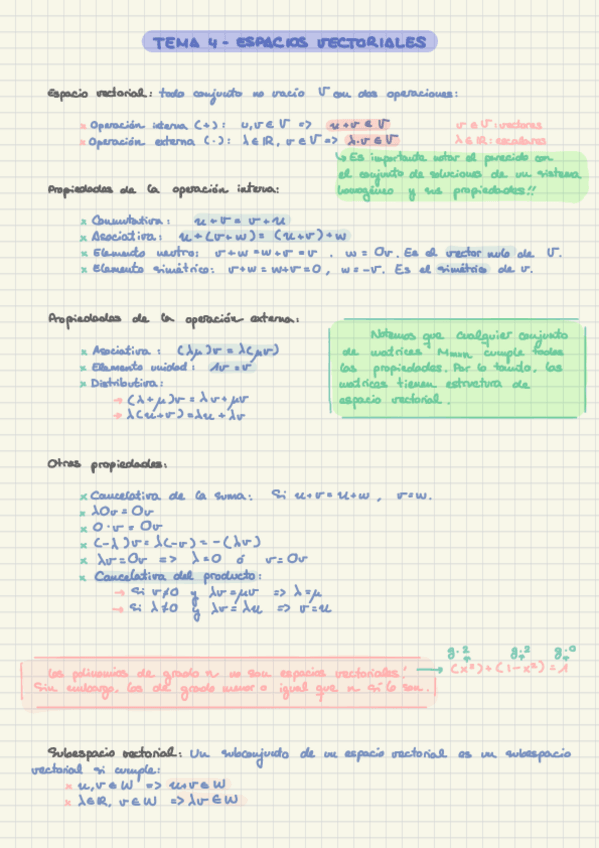 TEMA 4 - ESPACIOS VECTORIALES
Espacio vectorial: todo conjunto no vacío V con dos operaciones:
× Operación interna (+): u,v ∈ V => u+v ∈ V
v ∈ V: vectores
× Operación externa (·): λ ∈ IR, v ∈ V => λ·v ∈ V
λ ∈ IR: escalares
↳ Es importante notar el parecido con
el conjunto de soluciones de un sistema
homogéneo y sus propiedades!!
Propiedades de la operación interna:
× Conmutativa: u+v = v+u
× Asociativa: u+(v+w) = (u+v)+w
× Elemento neutro: v+w = w+v = v . w = Ov. Es el vector nulo de V.
× Elemento simétrico: v+w = w+v = 0 , w = -v. Es el simétrico de v.
Propiedades de la operación externa:
× Asociativa: (λμ)v = λ(μv)
× Elemento unidad: 1v = v
× Distributiva:
→ (λ+μ)v = λv+μv
→ λ(u+v) = λu + λv
Notemos que cualquier conjunto
de matrices Mmxn cumple todas
las propiedades. Por lo tanto, las
matrices tienen estructura de
espacio vectorial.
Otras propiedades:
× Cancelativa de la suma: Si u+v = u+w , v=w.
× λOv = Ov
× 0·v = Ov
× (-λ)v = λ(-v) = -(λv)
× λv = Ov => λ=0 ó v=Ov
× Cancelativa del producto:
→ Si v≠0 y λv = μv => λ=μ
→ Si λ≠0 y λv = λu => v=u
g.2 g.2 g.0
Los polinomios de grado n no son espacios vectoriales! → (x²)+(1-x²) = 1
Sin embargo, los de grado menor o igual que n sí lo son.
Subespacio vectorial: Un subconjunto de un espacio vectorial es un subespacio
vectorial si cumple:
× u,v ∈ W => u+v ∈ W
× λ ∈ IR, v ∈ W => λv ∈ W